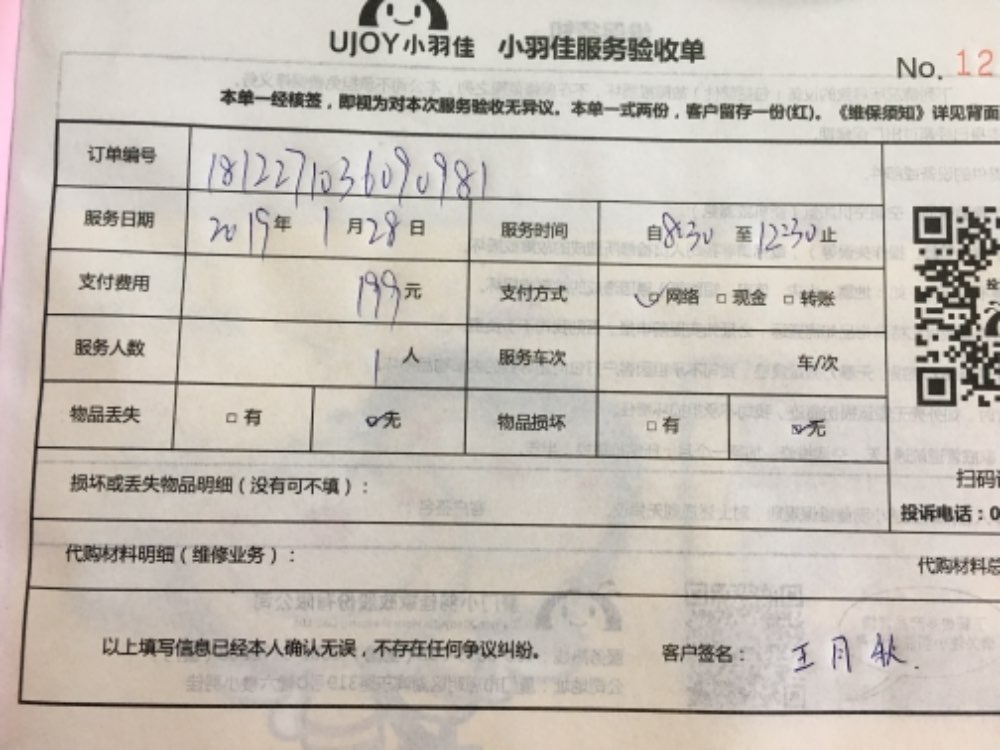 UJOY小羽佳 小羽佳服务验收单
No. 12
本单一经核签，即视为对本次服务验收无异议。本单一式两份，客户留存一份(红)。《维保须知》详见背面
订单编号 1812271036090981
服务日期 2019年 1月28日 服务时间 自8:30 至12:30止
支付费用 199元 支付方式 ☑网络 □现金 □转账
服务人数 1人 服务车次 车/次
物品丢失 □有 ☑无 物品损坏 □有 ☑无
损坏或丢失物品明细（没有可不填）：
扫码
投诉电话：0
代购材料明细（维修业务）：
代购材料总
以上填写信息已经本人确认无误，不存在任何争议纠纷。
客户签名：王月秋.